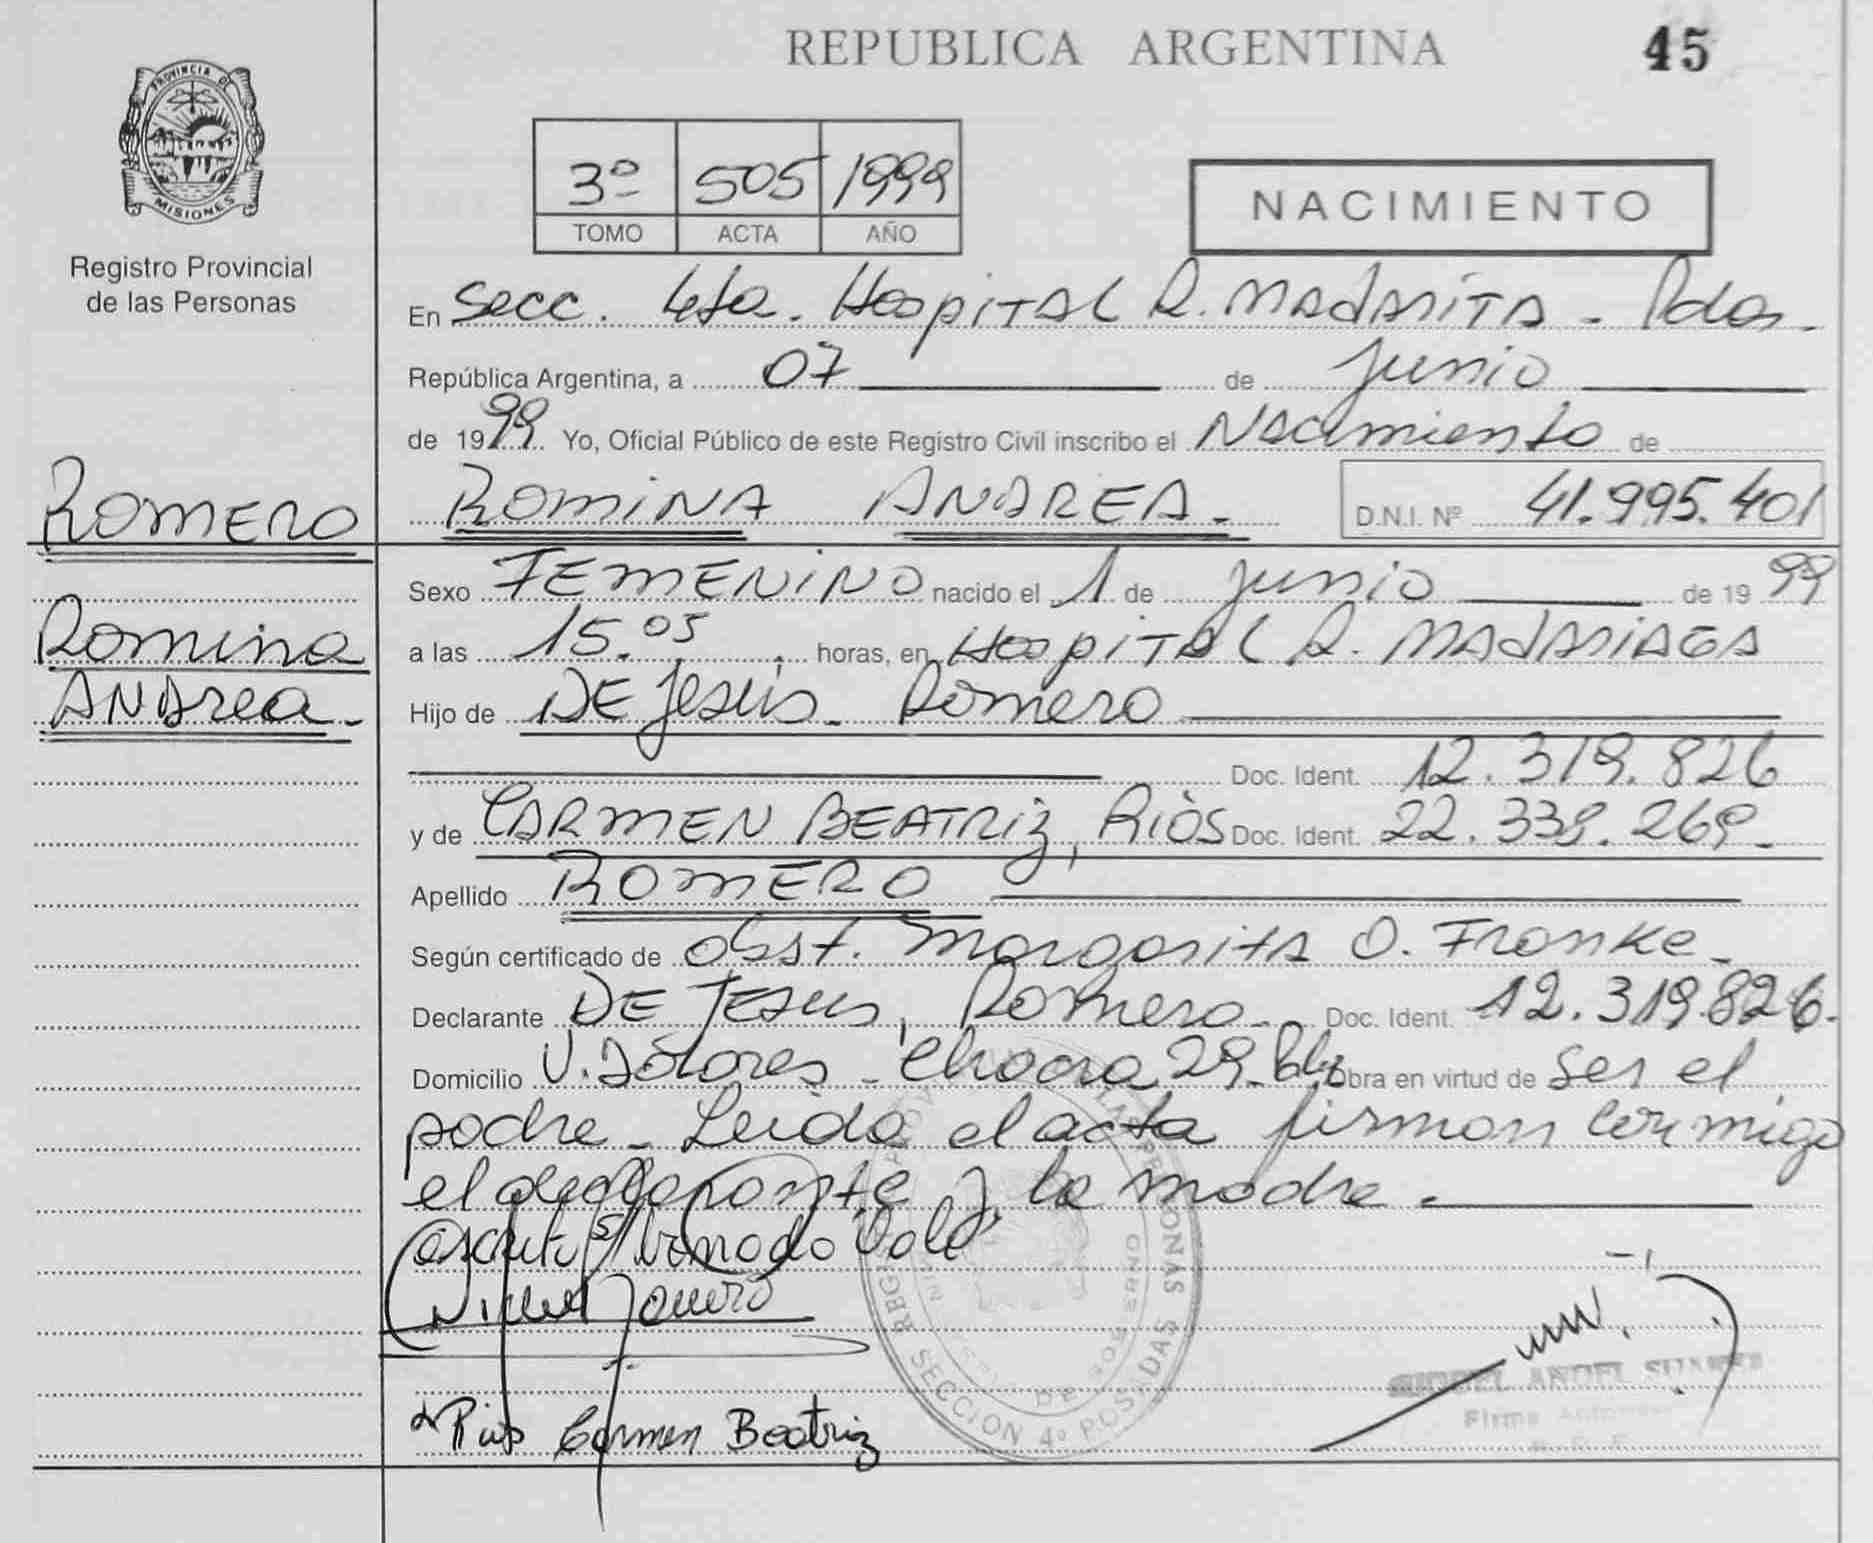 REPUBLICA ARGENTINA
45
PROVINCIA DE
MISIONES
Registro Provincial
de las Personas
3º 505 1999
TOMO ACTA AÑO
NACIMIENTO
En Secc. 4ta. Hospital R. MADARITA - Pdas.
República Argentina, a 07 de junio
de 1999 Yo, Oficial Público de este Registro Civil inscribo el Nacimiento de
ROMERO
ROMINA ANDREA. D.N.I. Nº 41.995.401
Romina
ANDrea.
Sexo FEMENINO nacido el 1 de junio de 1999
a las 15.05 horas, en Hospital R. MADARIAGA
Hijo de DE Jesús. Romero
Doc. Ident. 12.319.826
y de CARMEN BEATRIZ, Ríos Doc. Ident. 22.339.269.
Apellido ROMERO
Según certificado de obst. Margarita O. Franke.
Declarante DE JESUS, Romero. Doc. Ident. 12.319.826.
Domicilio V. Dolores - Chacra 29. Obra en virtud de ser el
padre. Leída el acta firman conmigo
el declarante y la madre.
Vale
Rios Carmen Beatriz
SECCION 4º POSADAS
MIGUEL ANGEL SUAREZ
Firma